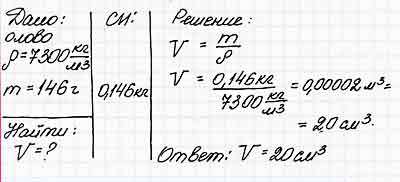 Дано:
олово
ρ=7300 кг/м3
m=146г
Найти:
V=?
СИ:
0,146кг
Решение:
V = m/ρ
V = 0,146кг / 7300 кг/м3 = 0,00002 м³=
= 20 см³.
Ответ: V=20 см³